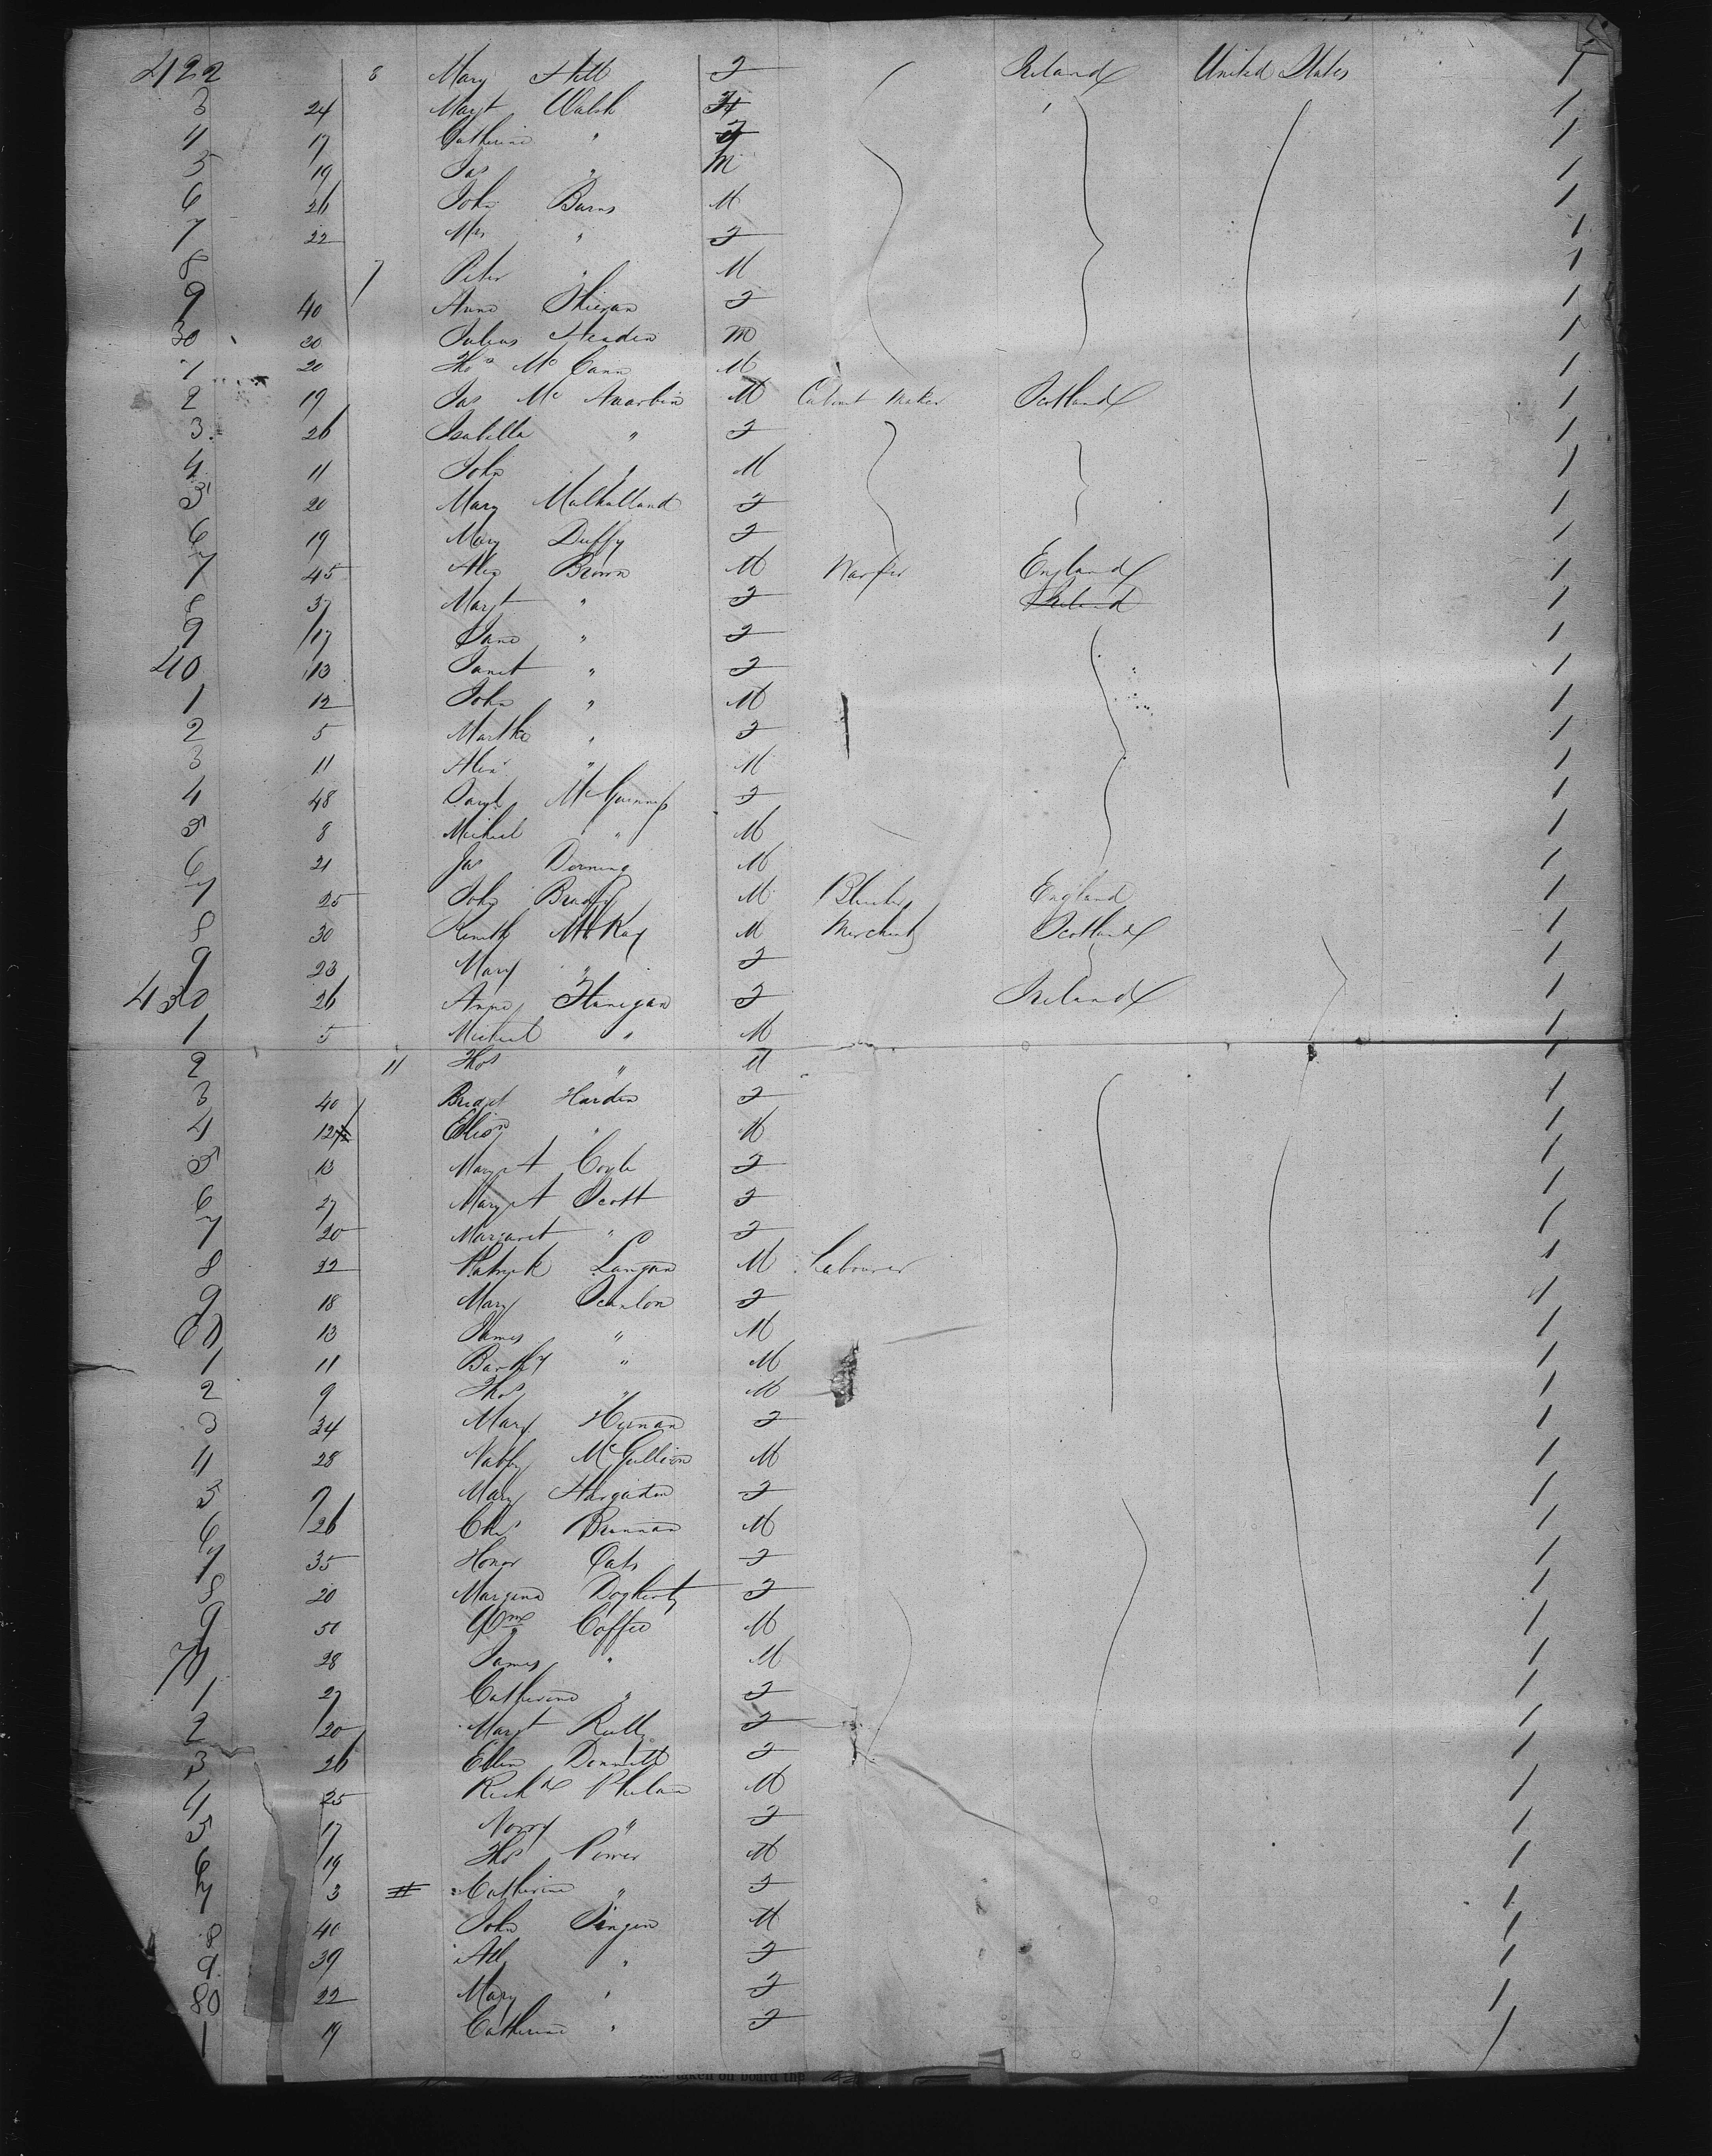 422 8 Mary Hill F Ireland United States 1
3 24 Margt Walsh F 1
4 17 Catherine " F 1
5 19 Jas " M 1
6 26 John Burns M 1
7 22 Mrs " F 1
8 7 Peter " M 1
9 40 Anne F 1
30 20 M 1
1 20 Thos McCann M 1
2 19 Jas Mc M Cabinet Maker Scotland 1
3 26 Isabella " F 1
4 11 John " M 1
5 20 Mary Mulhulland F 1
6 19 Mary Duffy F 1
7 45 Alex Brown M England 1
8 37 Margt " F Ireland 1
9 17 Jane " F 1
40 13 Janet " F 1
1 12 John " M 1
2 5 Martha " F 1
3 11 Alexr " M 1
4 48 McGuinness F 1
5 8 Michael " M 1
6 21 Jas M 1
7 25 John Brady M England 1
8 30 Keneth McKay M Merchant Scotland 1
9 23 Mary " F 1
450 26 Anne Flanegan F Ireland 1
1 5 Micheal " M 1
2 11 Thos " M 1
3 40 Bridget Harden F 1
4 12 " M 1
5 13 Mary A Coyle F 1
6 27 Mary A Scott F 1
7 20 Margaret " F 1
8 22 Patrick Langan M Labourer 1
9 18 Mary Scanlon F 1
60 13 James " M 1
1 11 " M 1
2 9 Thos " M 1
3 34 Mary F 1
4 28 M 1
5 Mary Hargadon F 1
6 26 Chs Brennan M 1
7 35 Honor Oats F 1
8 20 Dogherty F 1
9 50 Wm Coffee M 1
70 28 James " M 1
1 27 Catherine " F 1
2 20 Margt Reilly F 1
3 26 Ellen F 1
4 25 Richd Phelan M 1
5 17 Norry " F 1
6 19 Thos Power M 1
7 3 Catherine " F 1
8 40 John M 1
9 39 " F 1
80 22 Mary " F 1
1 19 Catherine " F 1
taken on board the